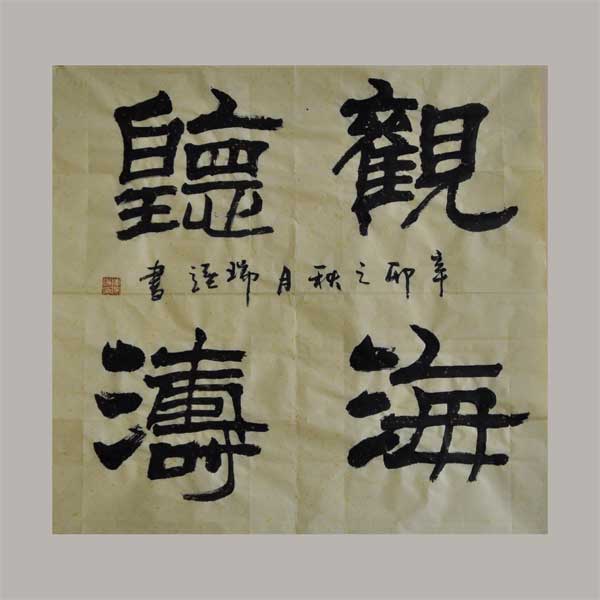 觀海
聽濤
辛卯之秋月瑞莲書